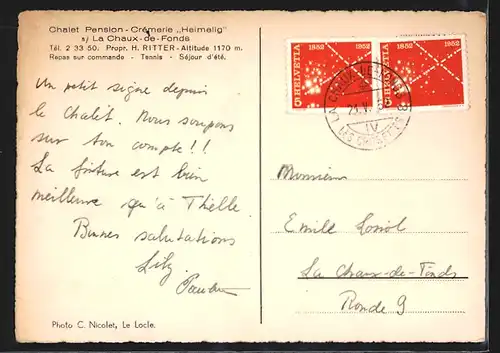 Chalet Pension-Crêmerie „Heimelig"
s/ La Chaux-de-Fonds
Tél. 2 33 50. Propr. H. RITTER - Altitude 1170 m.
Repas sur commande - Tennis - Séjour d'été.
Un petit signe depuis
le Chalet. Nous soupons
sur ton compte!!
La friture est bien
meilleure qu'à Thielle.
Bonnes salutations
Lily
Photo C. Nicolet, Le Locle.
1852 HELVETIA 1952
5
1852 HELVETIA 1952
5
LA CHAUX-DE-FONDS
IV
Monsieur
Emile
La Chaux-de-Fonds
Ronde 9